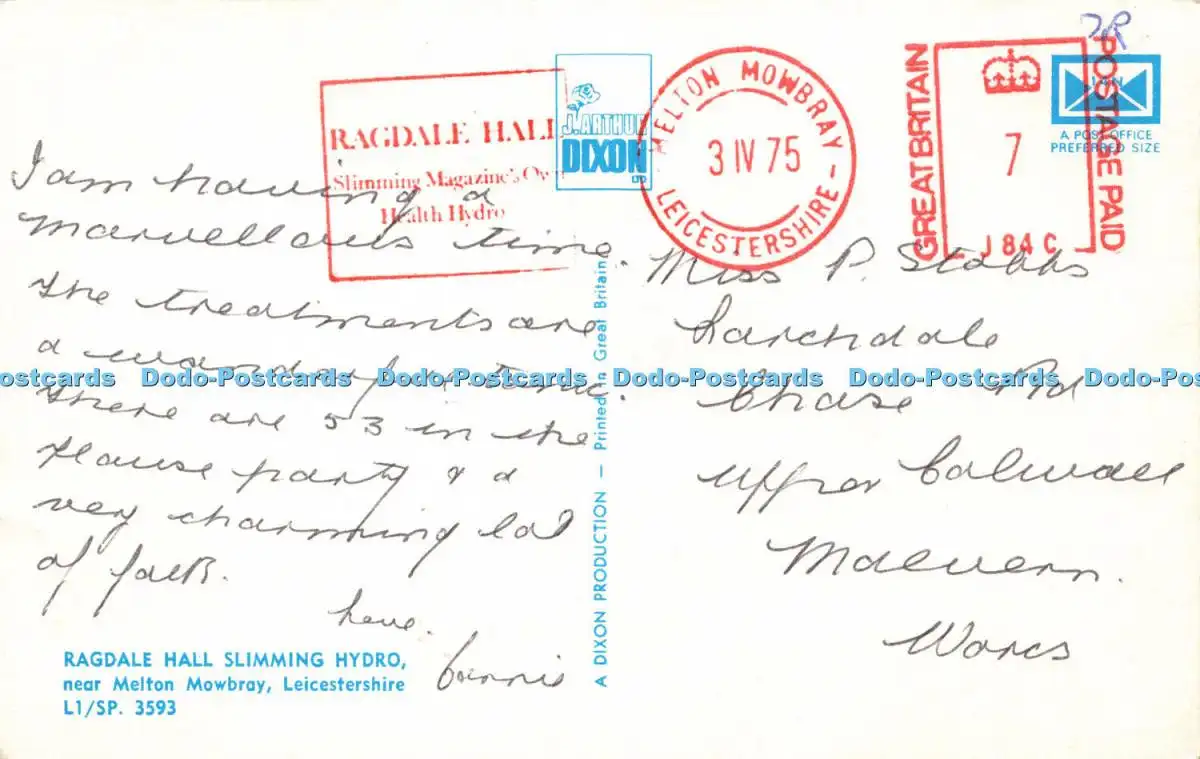 RAGDALE HALL
Slimming Magazine's Own
Health Hydro
J. ARTHUR
DIXON
LTD
MELTON MOWBRAY
3 IV 75
LEICESTERSHIRE
GREAT BRITAIN
7
J 84 C
POSTAGE PAID
A POST OFFICE
PREFERRED SIZE
I am having a
marvellous time.
The treatments are
a wonderful tonic.
There are 53 in the
House party & a
very charming lot
of folk.
Love.
Miss P. Stobbs
Larchdale
Chase Rd
Upper Colwall
Malvern.
Worcs
A DIXON PRODUCTION — Printed in Great Britain
RAGDALE HALL SLIMMING HYDRO,
near Melton Mowbray, Leicestershire
L1/SP. 3593
ostcards Dodo-Postcards Dodo-Postcards Dodo-Postcards Dodo-Postcards Dodo-Pos